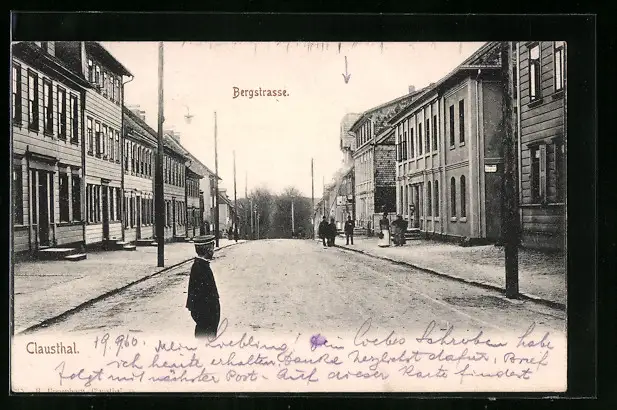 Bergstrasse.
Clausthal. 19.9.60. Mein Liebling! Dein liebes Schreiben habe
ich heute erhalten. Danke herzlichst dafür. Brief
folgt mit nächster Post. Auf dieser Karte findest